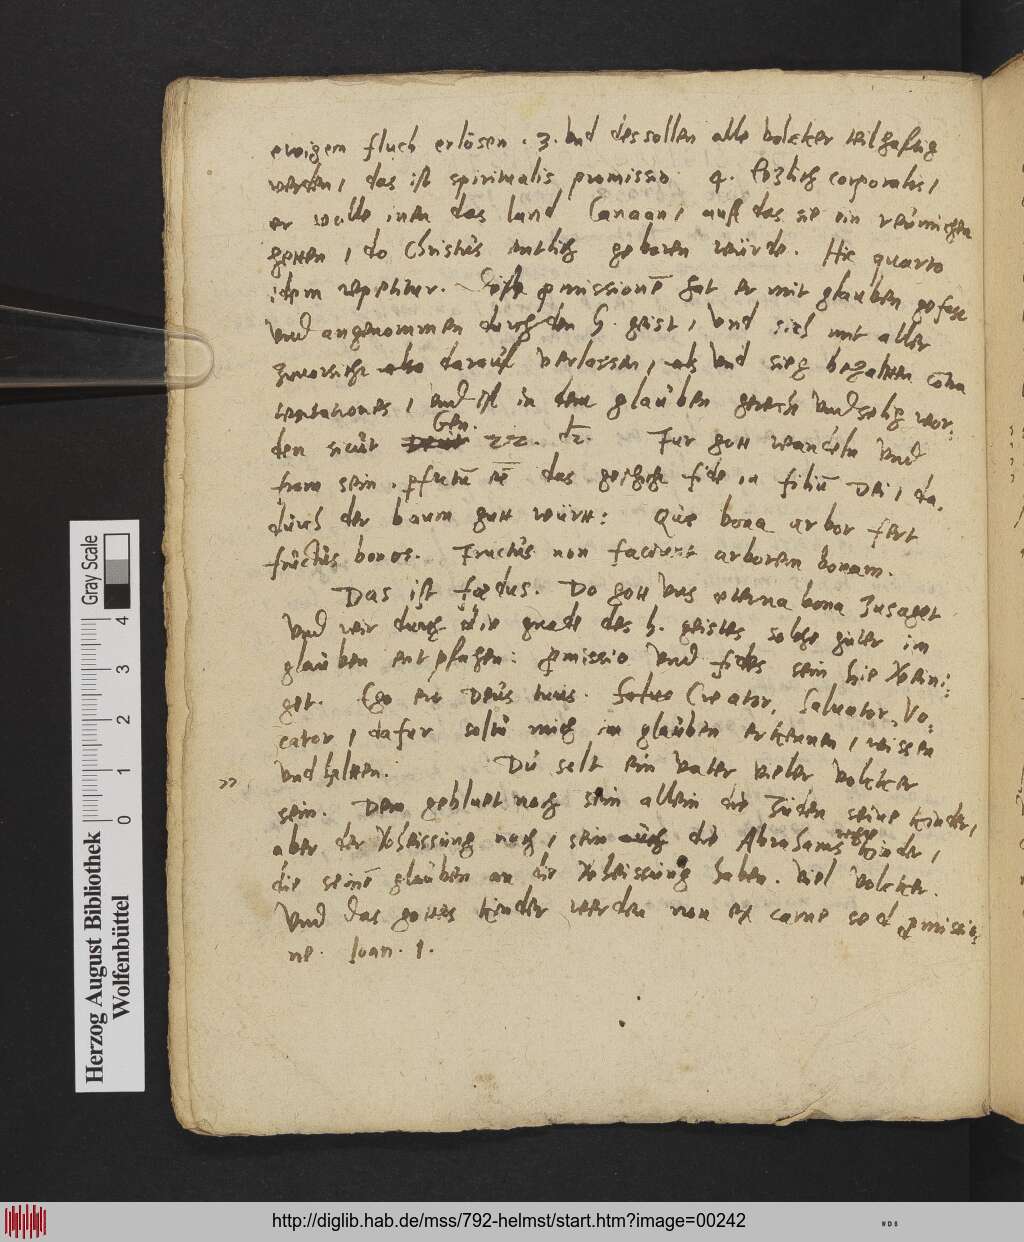 ewigem fluch erlösen. 3. Vnd des sollen alle volcker teilhaftig
werden, das ist spiritualis promissio. 4. letzlich corporalis,
er wolle inen das land Canaan, auf das sie ein
geben, do Christus entlich geboren würde. Hic quarto
idem repetitur. promissionē hat er mit glauben gefast
vnd angenommen durch den h. geist, vnd sich mit aller
zuversicht also darauf verlassen, vnd
tentationes, vnd ist in dem glauben gerecht vnd selig wor-
den sicut Gen. 22. Fur gott wandeln vnd
from sein. das geschicht fide in filiū Dei, da-
durch der baum gutt württ: Que bona arbor fert
fructus bonos. Fructus non faciunt arborem bonam.
Das ist fœdus. Do gott vns eterna bona zusaget
vnd wir durch die gnade des h. geistes solche güter im
glauben entpfahen: promissio vnd fides sein hie
get. Ego ero Deus tuus. Creator, Salvator, Vo-
cator, dafur soltu mich im glauben erkennen, wissen
vnd halten. Du solt ein vater vieler volcker
sein. Dem gebluet noch sein allein die Juden seine kinder,
aber der Vheissung noch, sein auch die Abrahams kinder,
die seinē glauben an die Vheissung haben. Viel volcker.
Vnd das gottes kinder werden non ex carne sed promissio-
ne. Ioan. 1.
Gray Scale
0 1 2 3 4
Herzog August Bibliothek
Wolfenbüttel
http://diglib.hab.de/mss/792-helmst/start.htm?image=00242